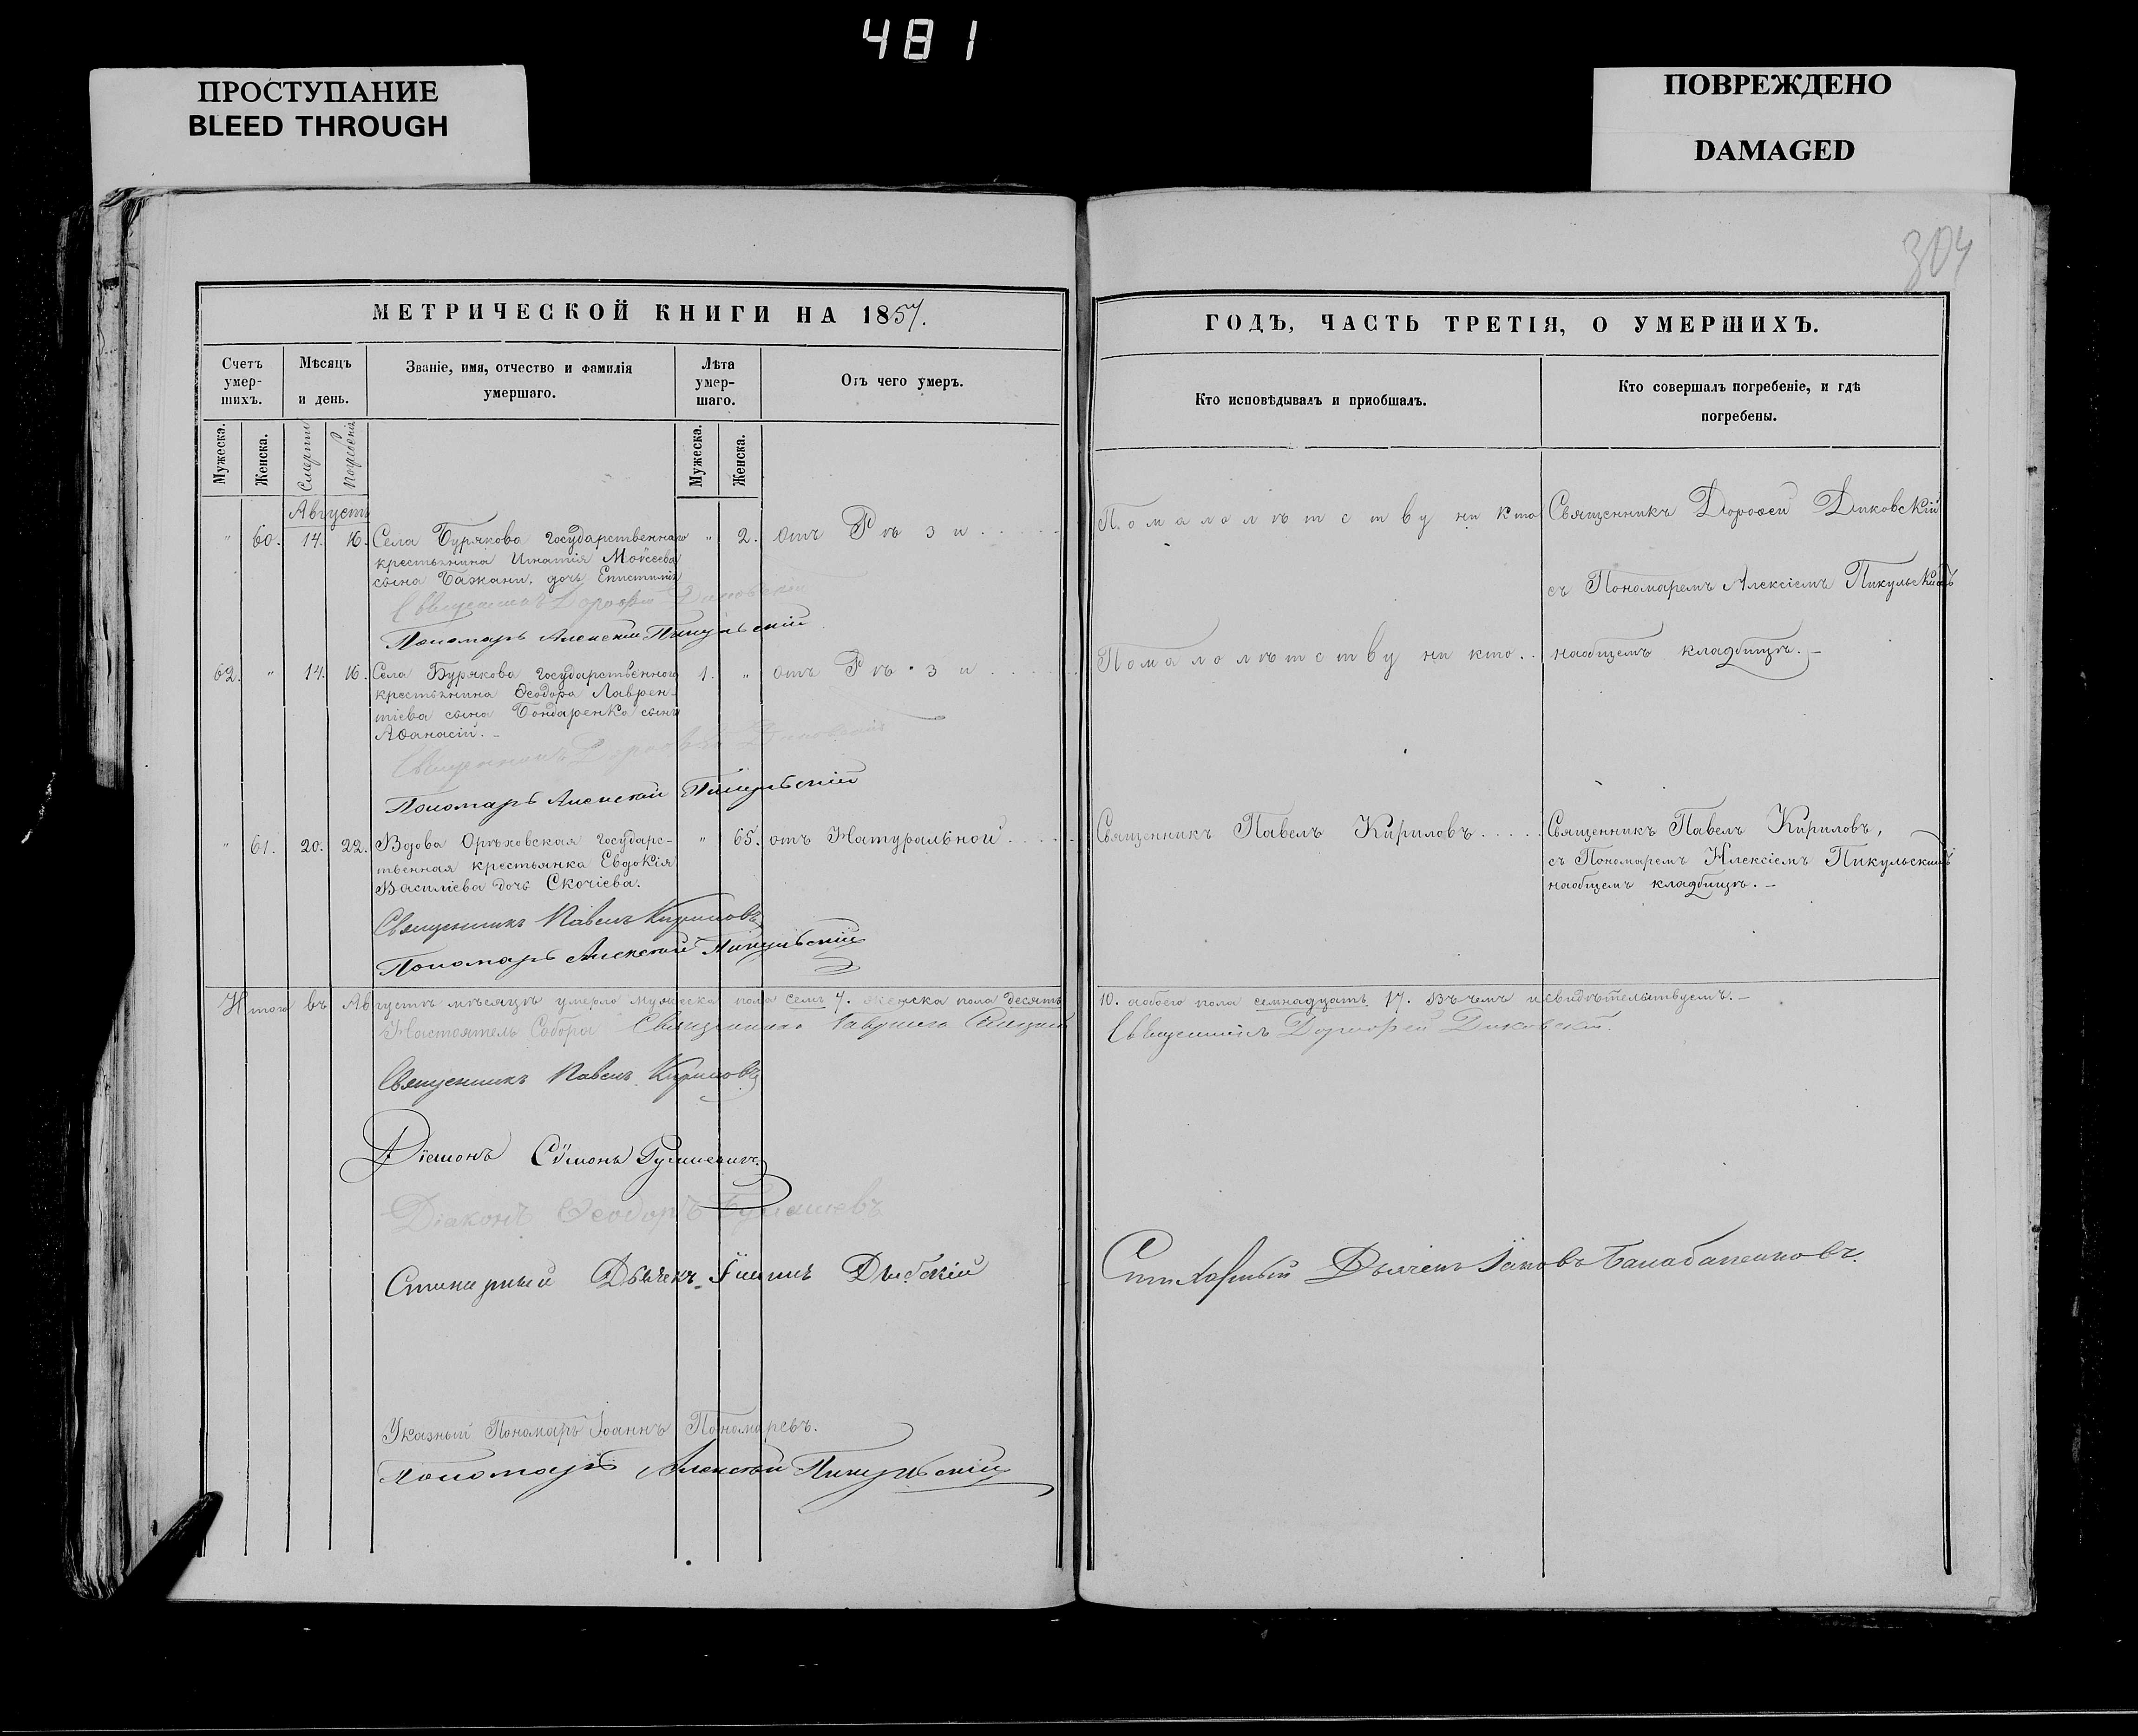 481
ПРОСТУПАНИЕ
BLEED THROUGH
ПОВРЕЖДЕНО
DAMAGED
304
МЕТРИЧЕСКОЙ КНИГИ НА 1857.
Счетъ умер-шихъ.
Мѣсяцъ и день.
Званіе, имя, отчество и фамилія умершаго.
Лѣта умер-шаго.
Отъ чего умеръ.
Мужеска.
Женска.
Смерти
Погребенія
Мужеска.
Женска.
Августъ
" 60. 14. 16. Села Бурякова государственнаго " 2. отъ Рѣзи
крестьянина Игнатія Мойсеева
сына Бажани, дочь Епистимія
Священникъ Дорофей Диковскій
Пономарь Алексій Пикульскій
62. " 14. 16. Села Бурякова государственнаго 1. " отъ Рѣзи
крестьянина Ѳеодора Лаврен-
тіева сына Бондаренко сынъ
Аѳанасій.
Священникъ Дорофей Диковскій
Пономарь Алексій Пикульскій
" 61. 20. 22. Вдова Орѣховская государс- " 65. отъ Натуральной
твенная крестьянка Евдокія
Василіева дочь Скочіева.
Священникъ Павелъ Кириловъ
Пономарь Алексій Пикульскій
Итого въ Августѣ мѣсяцѣ умерло мужеска пола семь 7. женска пола десять
Настоятель Собора Священникъ
Священникъ Павелъ Кириловъ
Діаконъ Сѵмонъ
Діаконъ Ѳеодоръ
Стихарный Дьячекъ
Указный Пономарь Іоаннъ Пономаревъ.
Пономарь Алексій Пикульскій
ГОДЪ, ЧАСТЬ ТРЕТІЯ, О УМЕРШИХЪ.
Кто исповѣдывалъ и приобшалъ.
Кто совершалъ погребеніе, и гдѣ погребены.
По малолѣтству ни кто
Священникъ Дороѳей Диковскій
съ Пономаремъ Алексіемъ Пикульскимъ
По малолѣтству ни кто..
наобщемъ кладбищѣ.
Священникъ Павелъ Кириловъ
Священникъ Павелъ Кириловъ,
съ Пономаремъ Алексіемъ Пикульскимъ
наобщемъ кладбищѣ.
10. аобоего пола семнадцать 17. Въ чемъ исвидѣтельствуемъ.
Священникъ Дорофей Диковскій.
Стихарный Дьячекъ Іаковъ